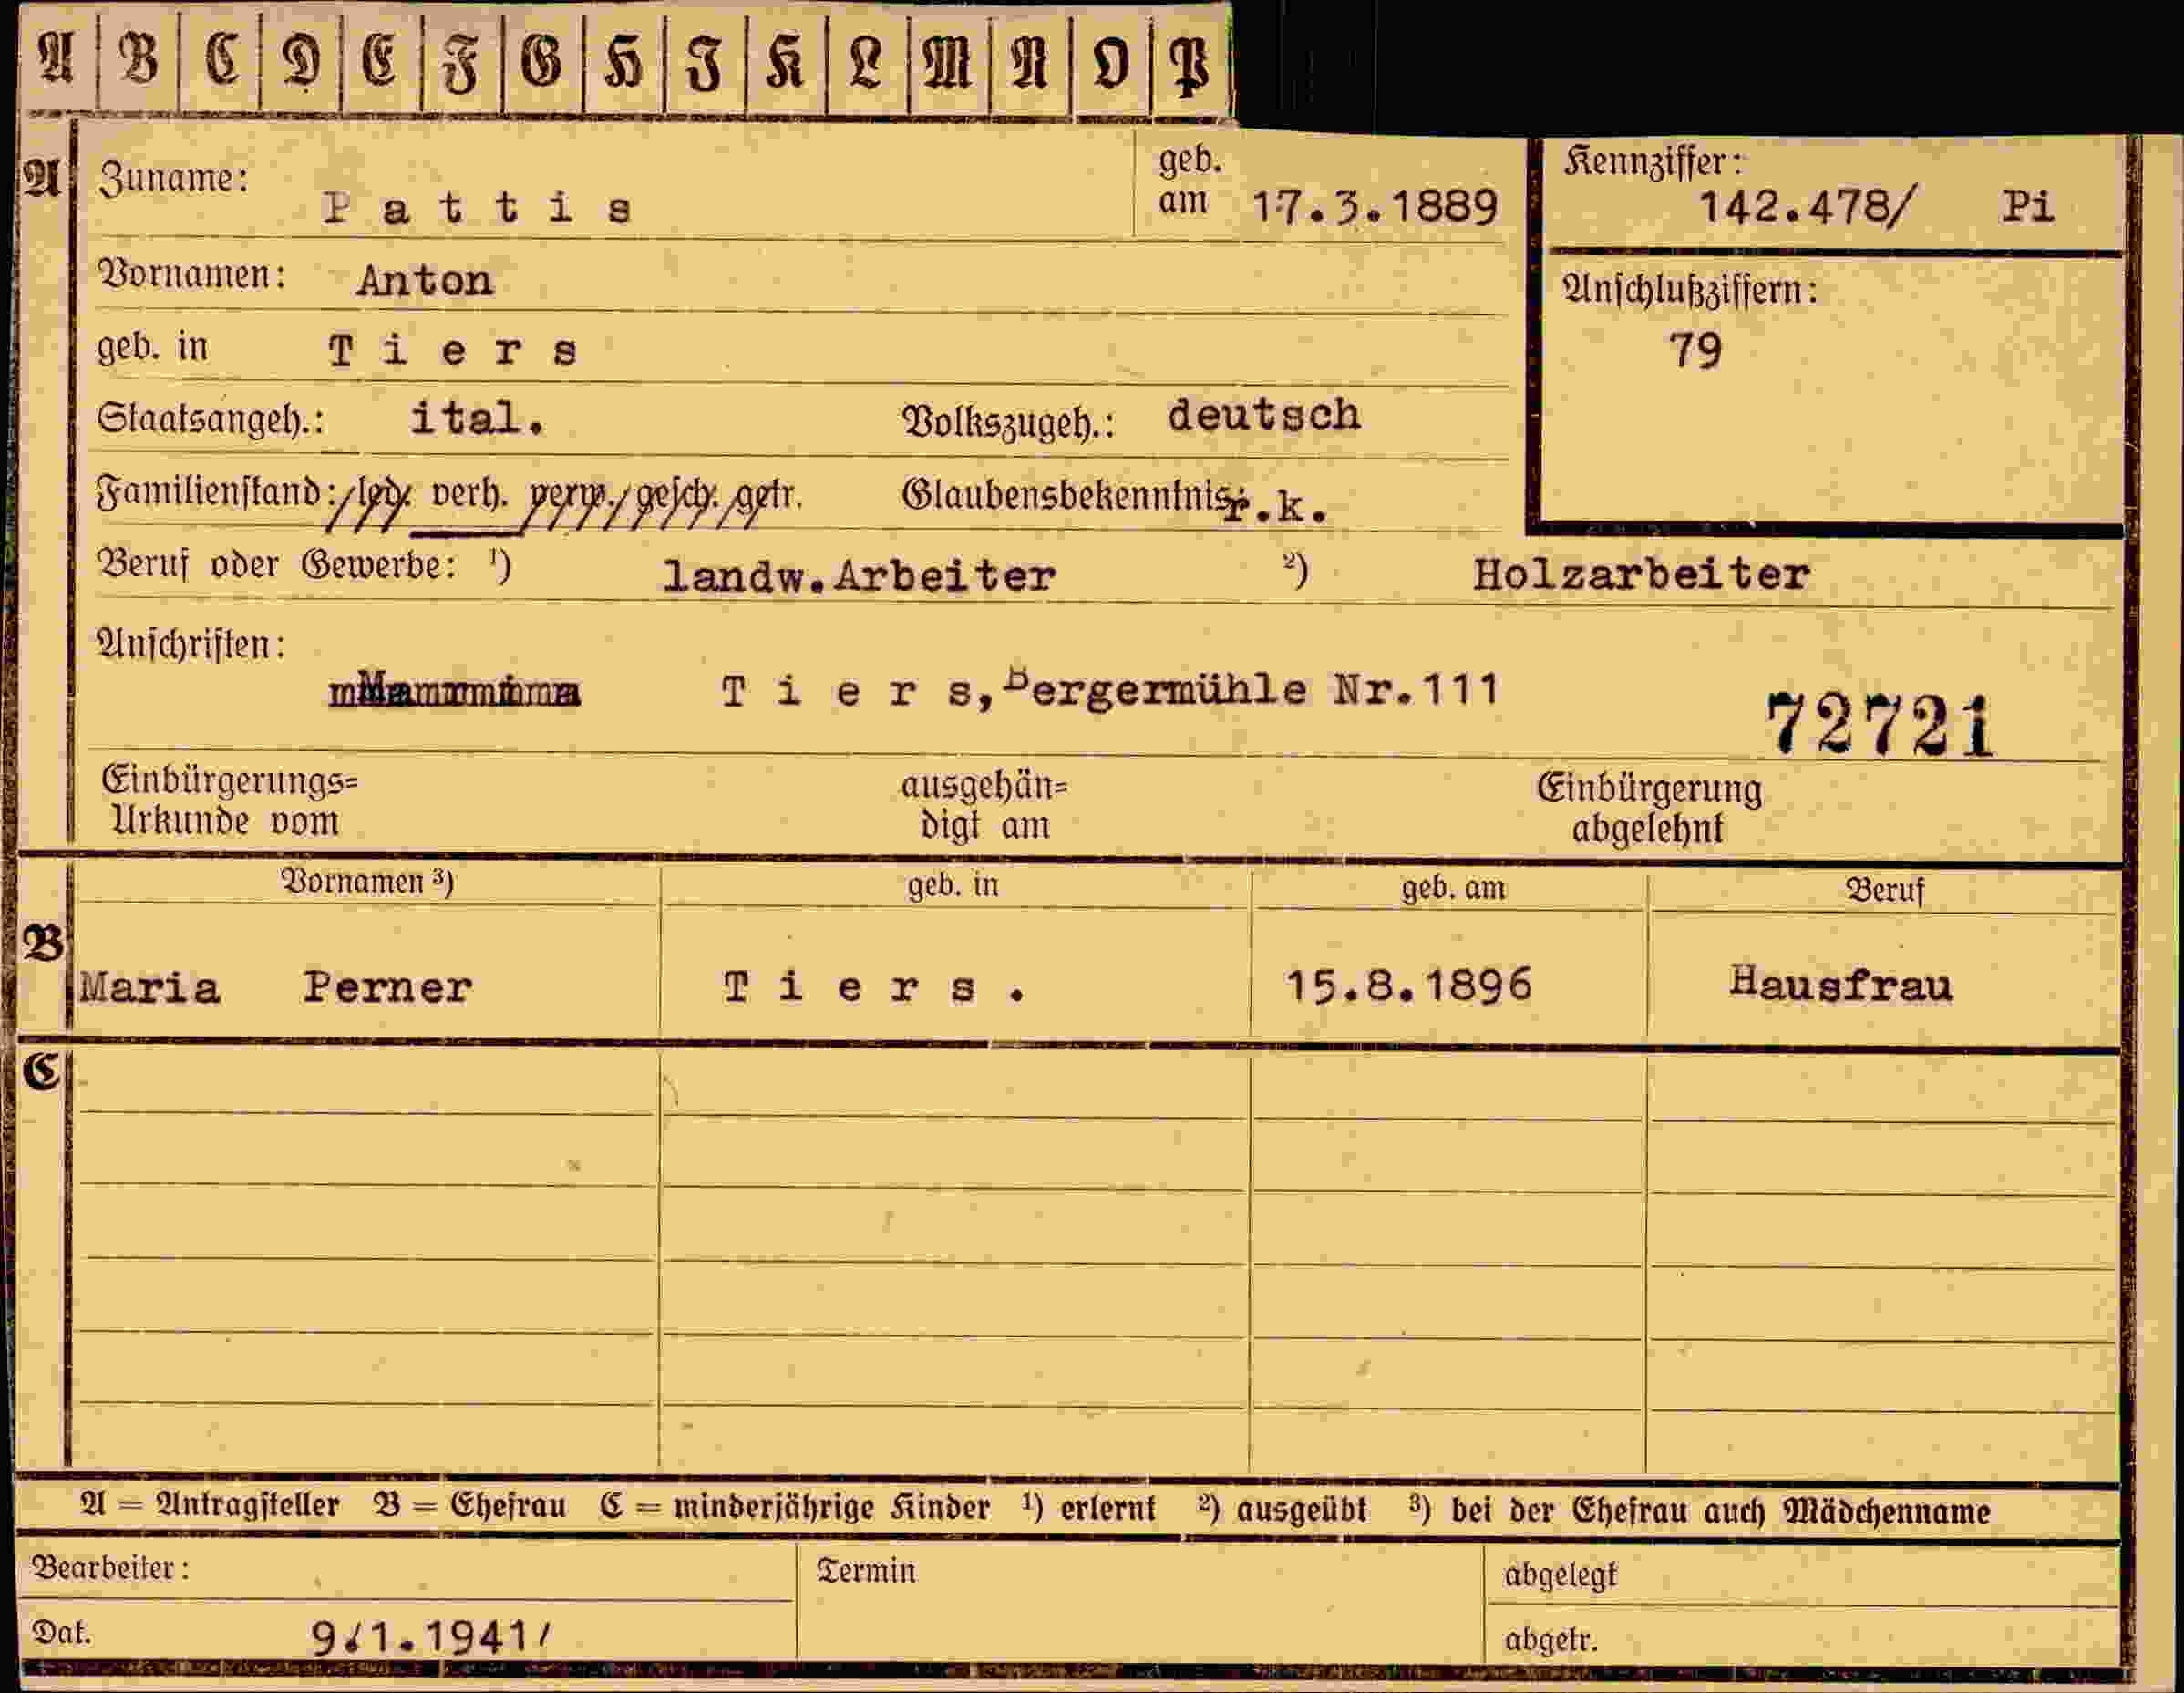 A B C D E F G H I K L M N O P
A Zuname: Pattis geb. am 17.3.1889 Kennziffer: 142.478/ Pi
Vornamen: Anton Anschlußziffern:
geb. in Tiers 79
Staatsangeh.: ital. Volkszugeh.: deutsch
Familienstand: led. verh. verw. gesch. getr. Glaubensbekenntnis: r.k.
Beruf oder Gewerbe: 1) landw.Arbeiter 2) Holzarbeiter
Anschriften:
Tiers, Bergermühle Nr.111 72721
Einbürgerungs= ausgehän= Einbürgerung
Urkunde vom digt am abgelehnt
Vornamen 3) geb. in geb. am Beruf
B
Maria Perner Tiers. 15.8.1896 Hausfrau
C
A = Antragsteller B = Ehefrau C = minderjährige Kinder 1) erlernt 2) ausgeübt 3) bei der Ehefrau auch Mädchenname
Bearbeiter: Termin abgelegt
Dat. 9.1.1941/ abgetr.